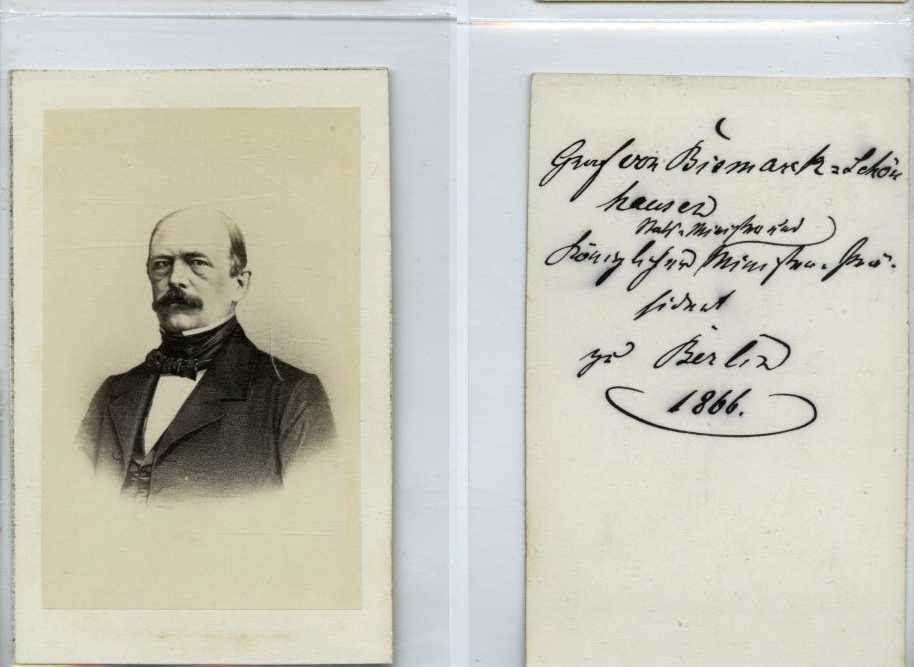 Graf von Bismarck=Schön
hausen
Staats-Minister und
Königlicher Minister-Prä-
sident
zu Berlin
1866.